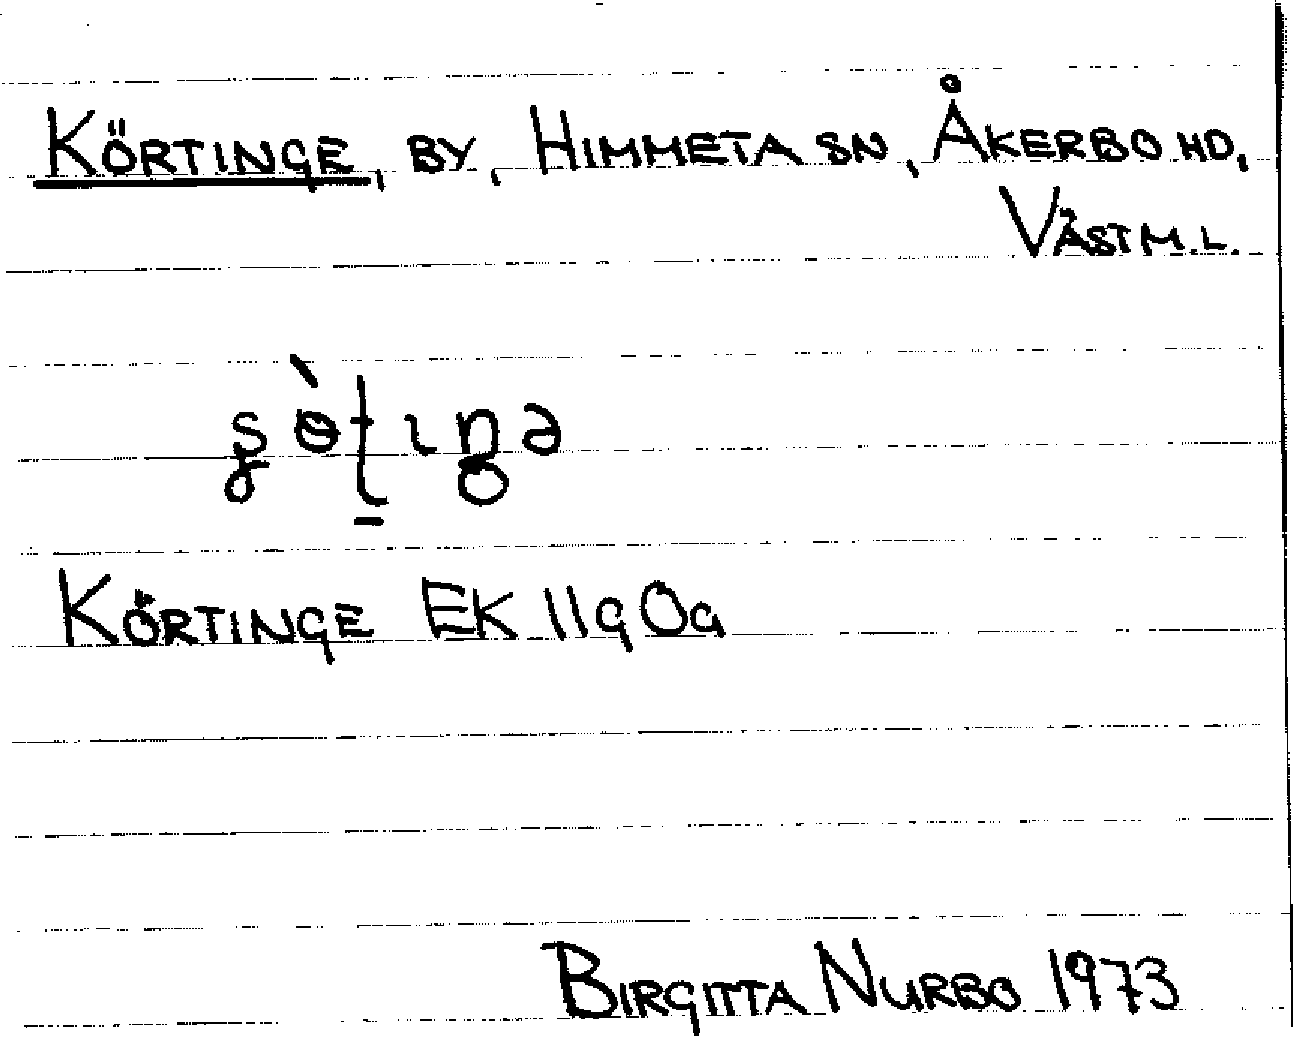 KÖRTINGE, BY, HIMMETA SN, ÅKERBO HD,
VÄSTM. L.
KÖRTINGE EK 11g 0a
BIRGITTA NURBO 1973